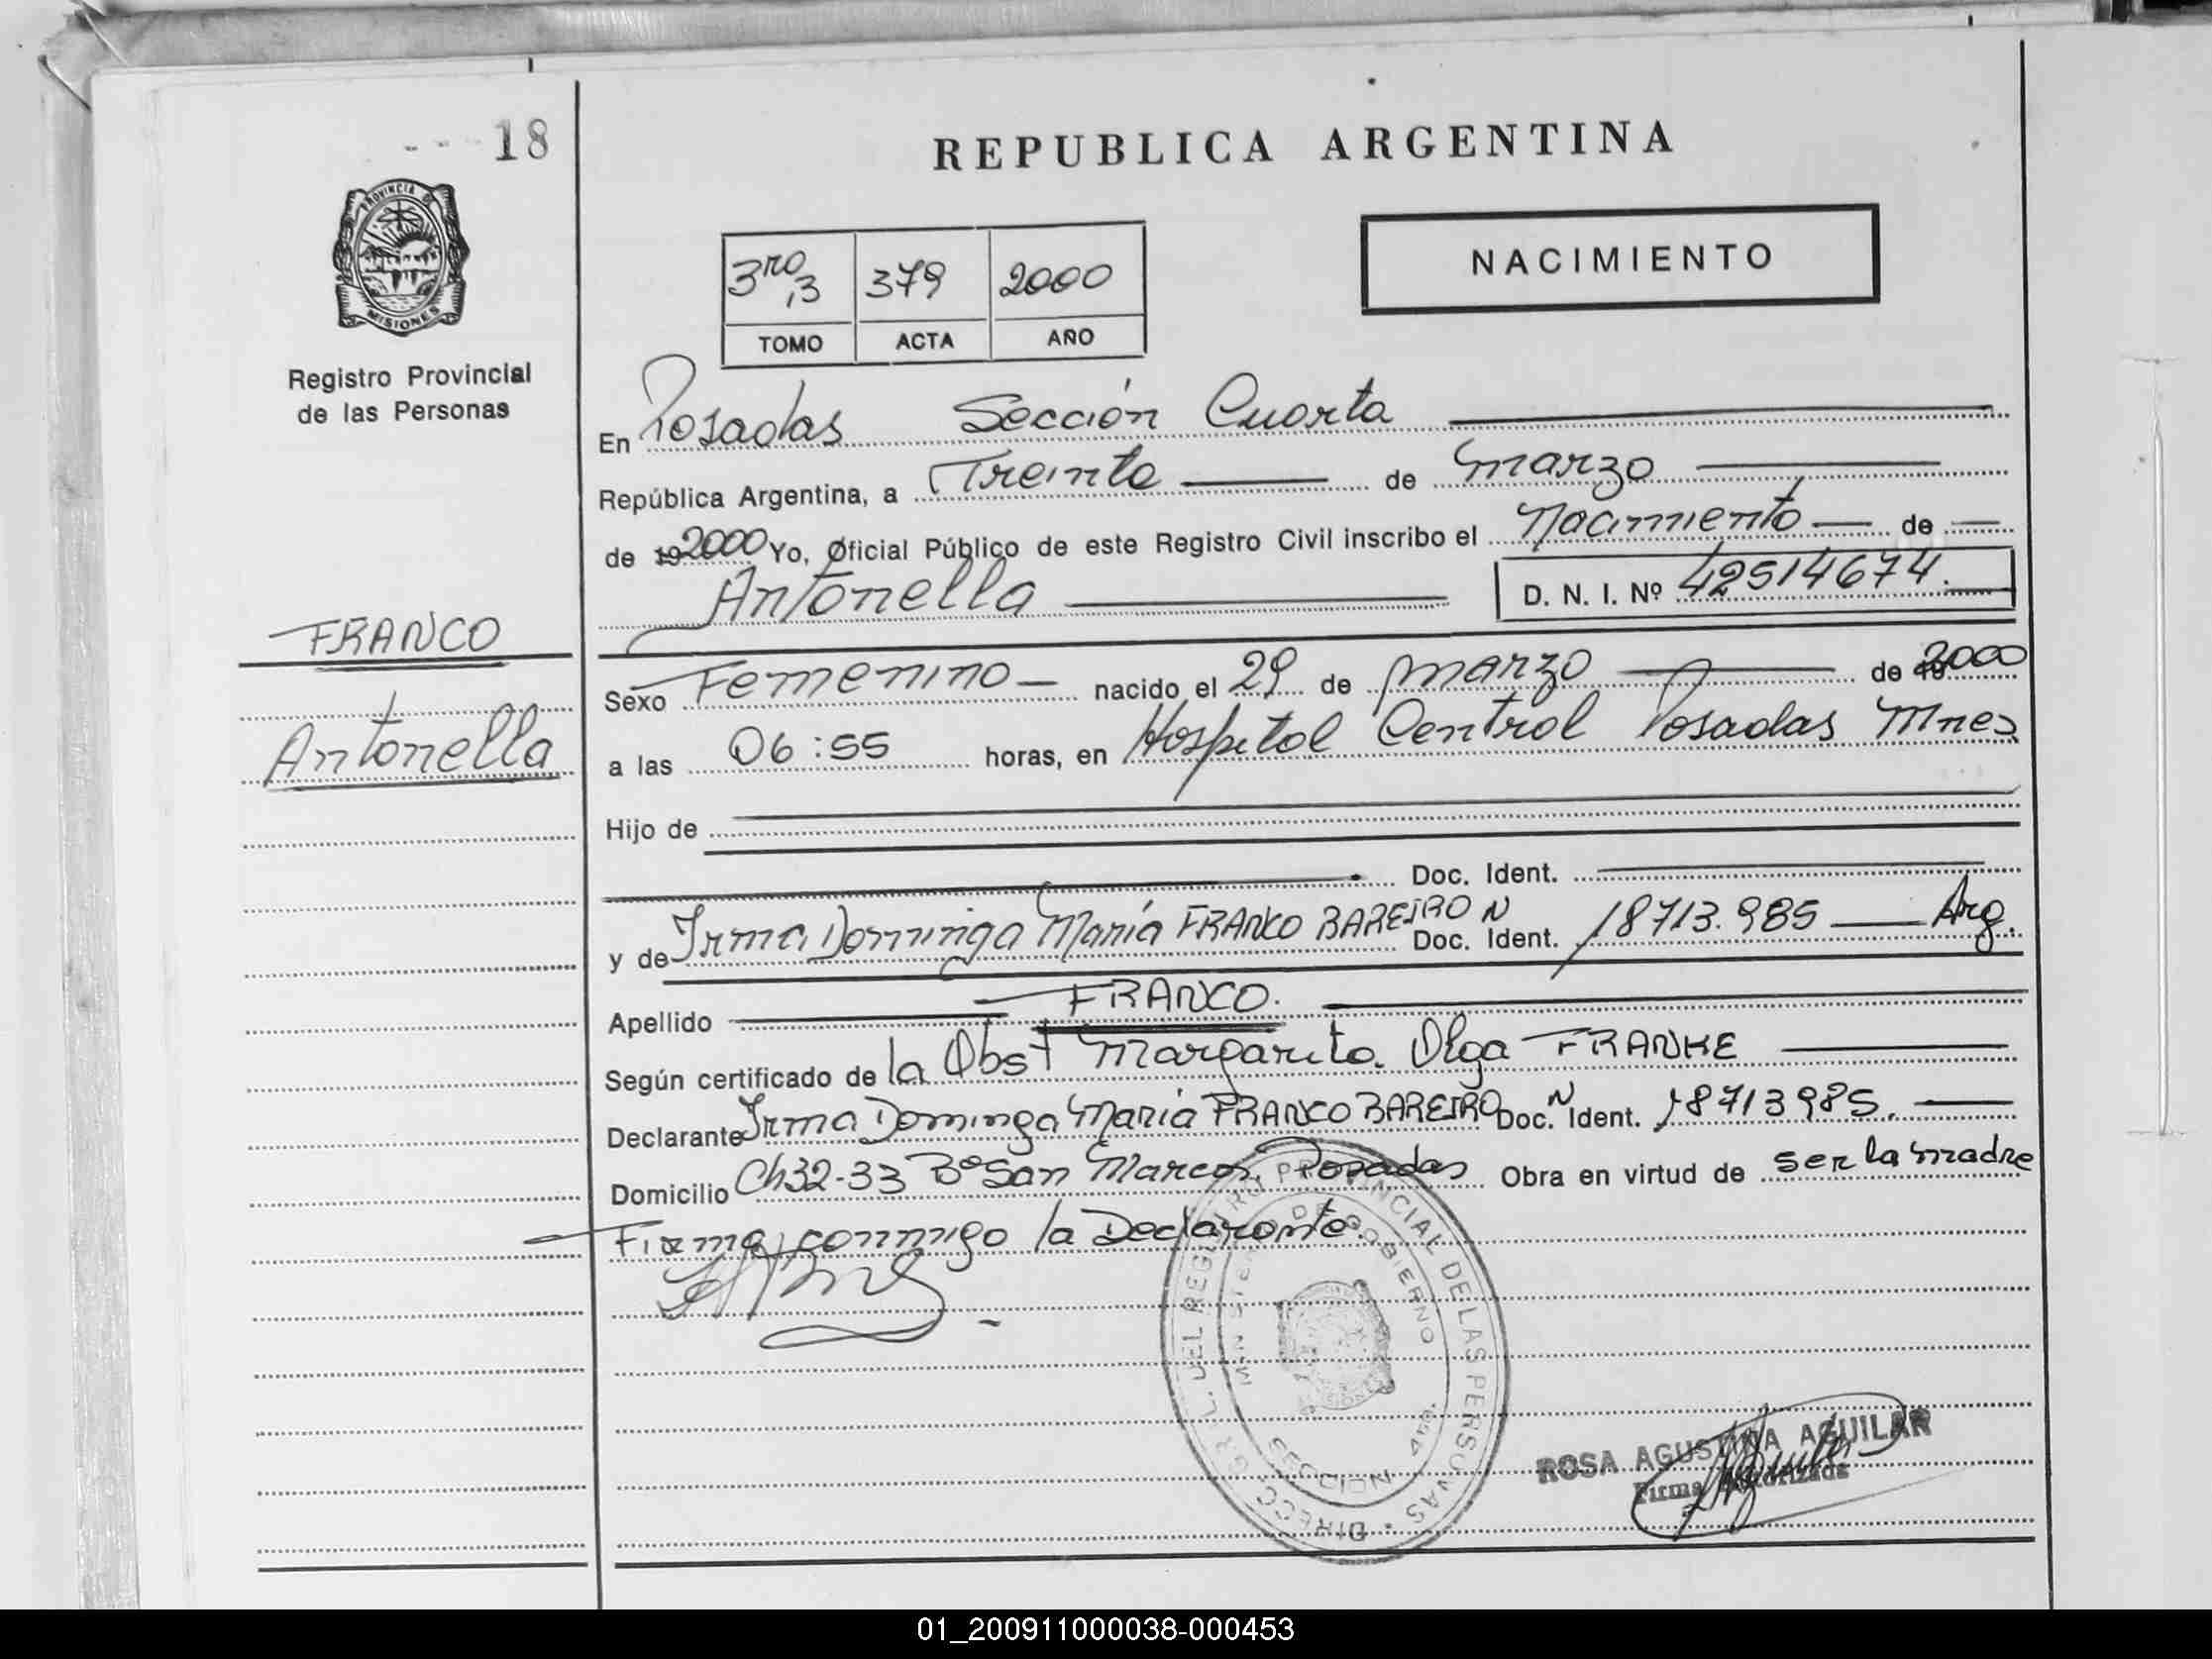 18
PROVINCIA DE
MISIONES
Registro Provincial
de las Personas
FRANCO
Antonella
REPUBLICA ARGENTINA
NACIMIENTO
3ro,3 379 2000
TOMO ACTA AÑO
En Posadas Sección Cuarta
República Argentina, a Treinta de Marzo
de 192000 Yo, Oficial Público de este Registro Civil inscribo el Nacimiento de
Antonella D. N. I. Nº 42514674.
Sexo Femenino nacido el 29 de Marzo de 192000
a las 06:55 horas, en Hospital Central Posadas Mnes
Hijo de
Doc. Ident.
y de Irma Dominga María FRANCO BAREIRO N Doc. Ident. 18713.985 Arg.
Apellido FRANCO.
Según certificado de la Obst Margarita Olga FRANKE
Declarante Irma Dominga María FRANCO BAREIRO Doc. N Ident. 18713985.
Domicilio Ch32-33 Bº San Marcos, Posadas Obra en virtud de ser la Madre
Firma conmigo la Declarante.
DIRECC. GRL. DEL REGISTRO PROVINCIAL DE LAS PERSONAS
MINISTERIO DE GOBIERNO
SECCION 4ta.
ROSA AGUSTINA AGUILAR
Firma Autorizada
01_200911000038-000453